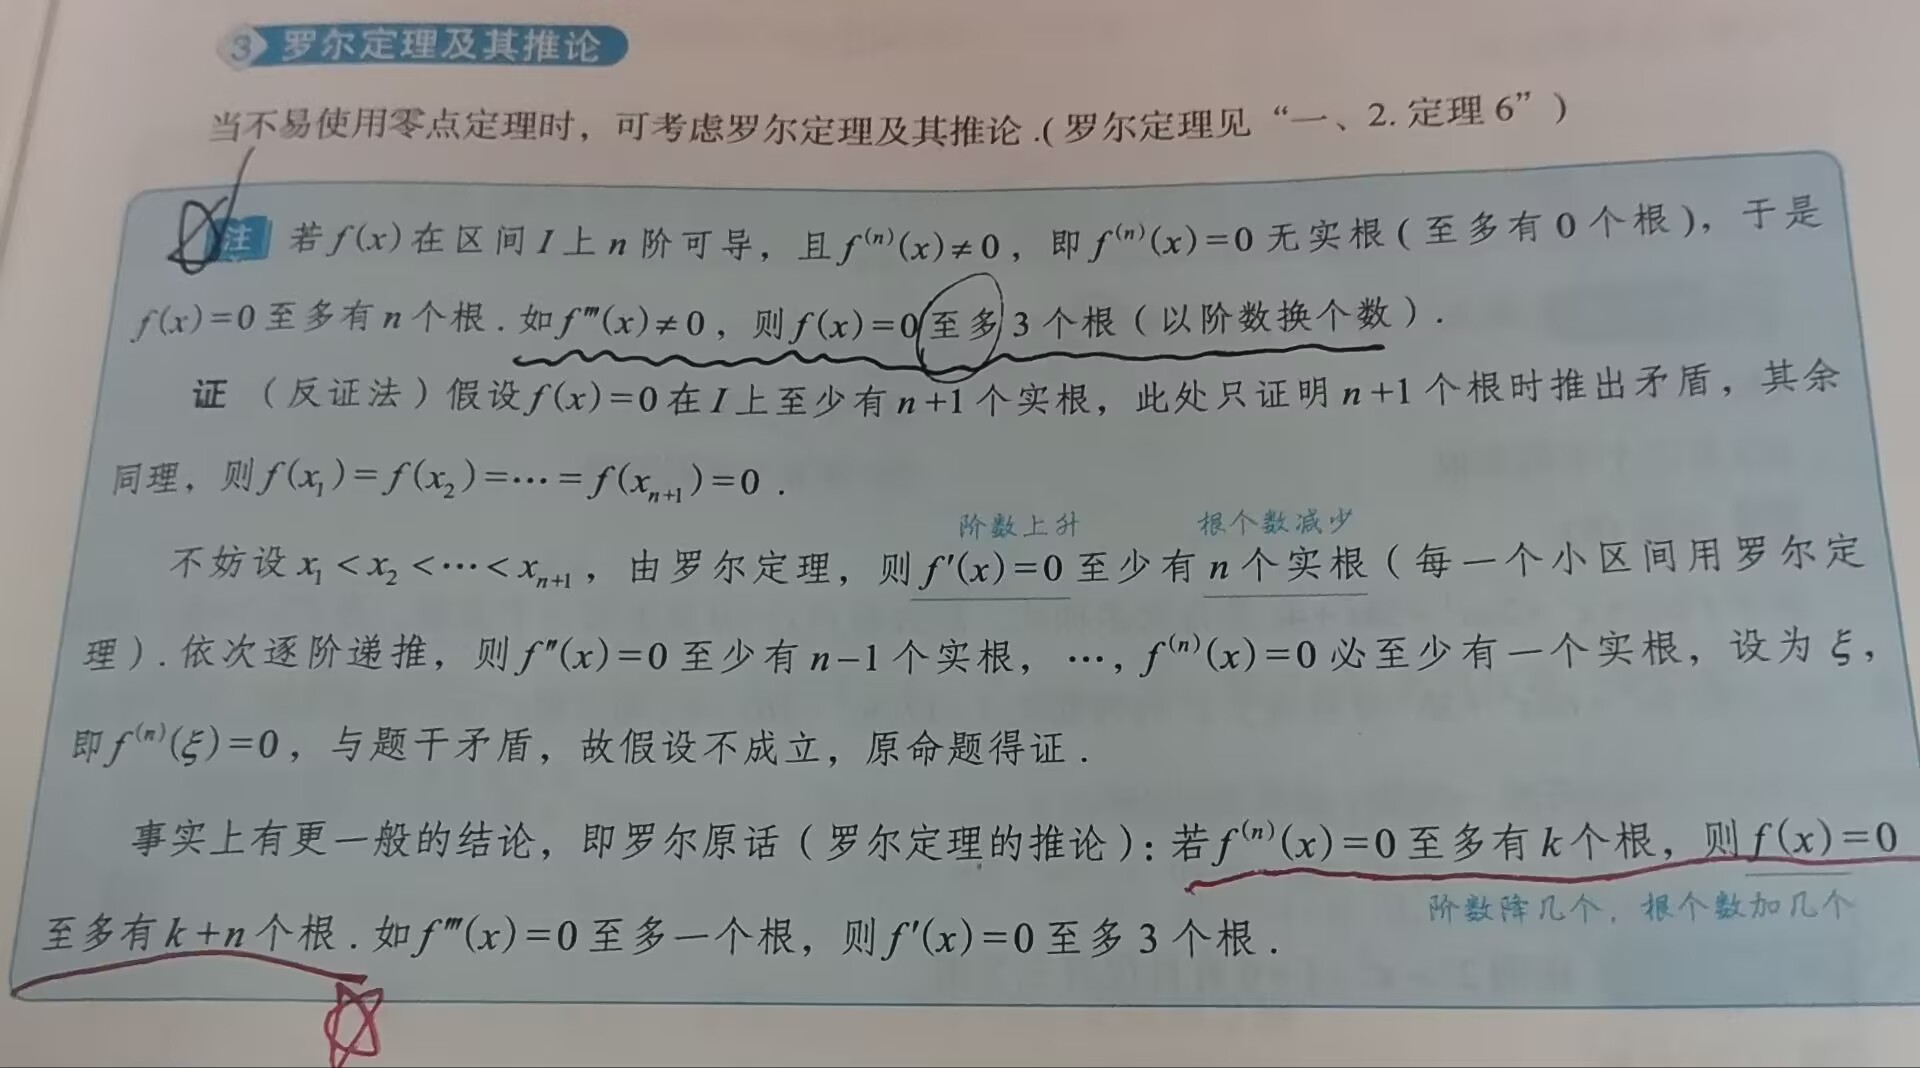 3 罗尔定理及其推论
当不易使用零点定理时，可考虑罗尔定理及其推论.(罗尔定理见“一、2.定理6”)
注 若f(x)在区间I上n阶可导，且f⁽ⁿ⁾(x)≠0，即f⁽ⁿ⁾(x)=0无实根(至多有0个根)，于是
f(x)=0至多有n个根.如f‴(x)≠0，则f(x)=0至多3个根(以阶数换个数).
证 (反证法)假设f(x)=0在I上至少有n+1个实根，此处只证明n+1个根时推出矛盾，其余
同理，则f(x₁)=f(x₂)=…=f(xₙ₊₁)=0.
阶数上升 根个数减少
不妨设x₁<x₂<…<xₙ₊₁，由罗尔定理，则f′(x)=0至少有n个实根(每一个小区间用罗尔定
理).依次逐阶递推，则f″(x)=0至少有n−1个实根，…，f⁽ⁿ⁾(x)=0必至少有一个实根，设为ξ，
即f⁽ⁿ⁾(ξ)=0，与题干矛盾，故假设不成立，原命题得证.
事实上有更一般的结论，即罗尔原话(罗尔定理的推论)：若f⁽ⁿ⁾(x)=0至多有k个根，则f(x)=0
阶数降几个，根个数加几个
至多有k+n个根.如f‴(x)=0至多一个根，则f′(x)=0至多3个根.